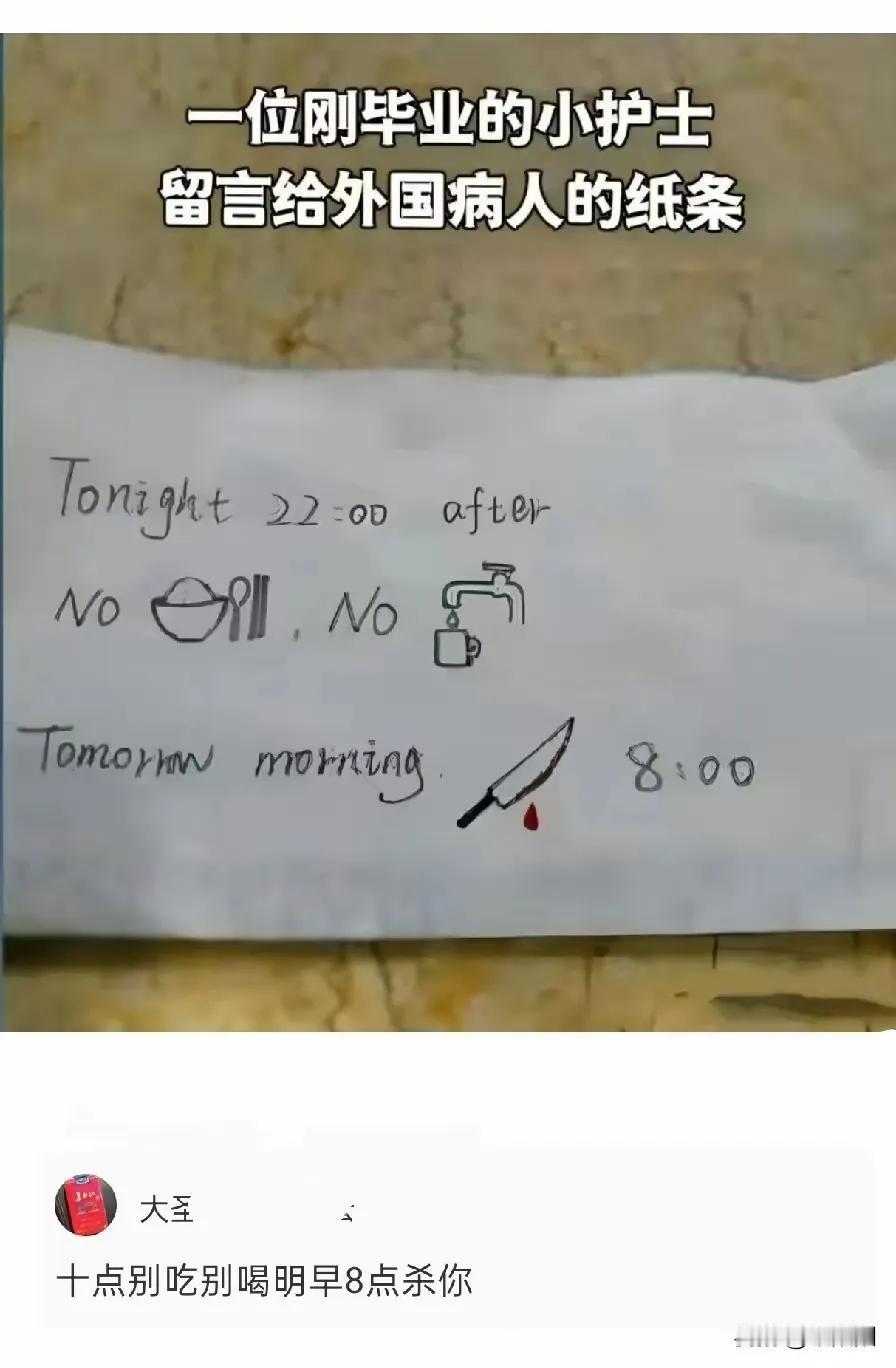 一位刚毕业的小护士
留言给外国病人的纸条
Tonight 22:00 after
No , No
Tomorrow morning. 8:00
大圣
十点别吃别喝明早8点杀你